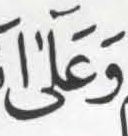 وَعَلَّىٰ ا